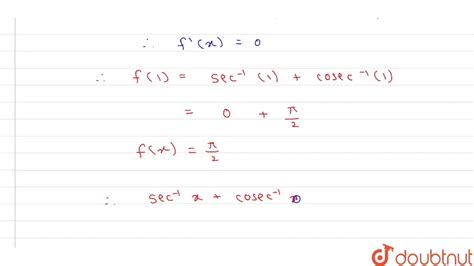 ∴ f'(x) = 0
∴ f(1) = sec⁻¹ (1) + cosec⁻¹ (1)
= 0 + π/2
f(x) = π/2
∴ sec⁻¹ x + cosec⁻¹ x
doubtnut